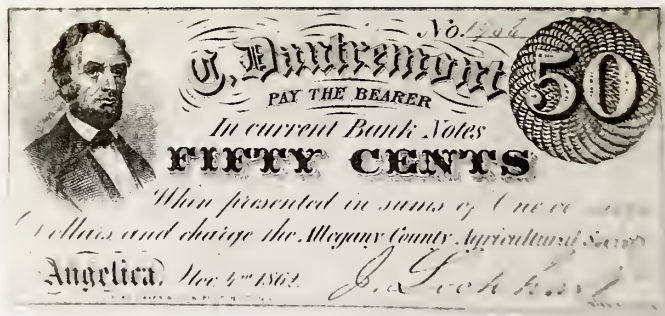 No.
G. Dautremont
50
PAY THE BEARER
In current Bank Notes
FIFTY CENTS
When presented in sums of One or
Dollars and charge the Allegany County Agricultural Society
Angelica, 1862. J. Lockhart